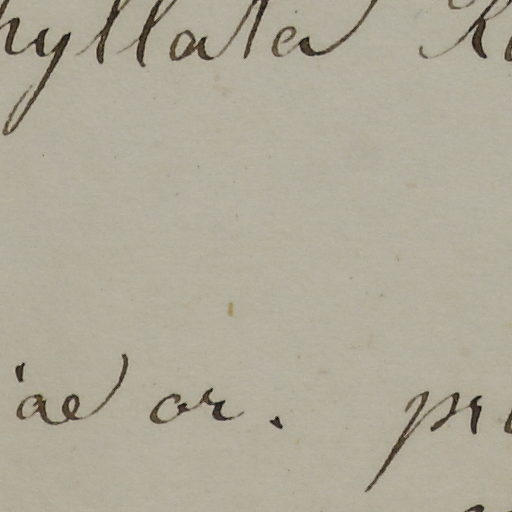 hyllata R
iae or. pr